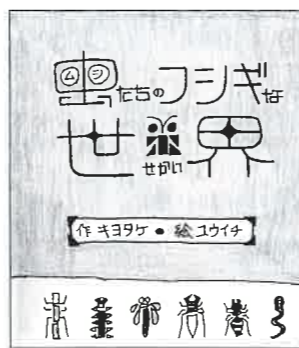 虫たちのフシギな
世界
せかい
作 キヨタケ ● 絵 ユウイチ